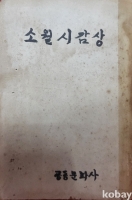 소월시감상
문화사
kobay